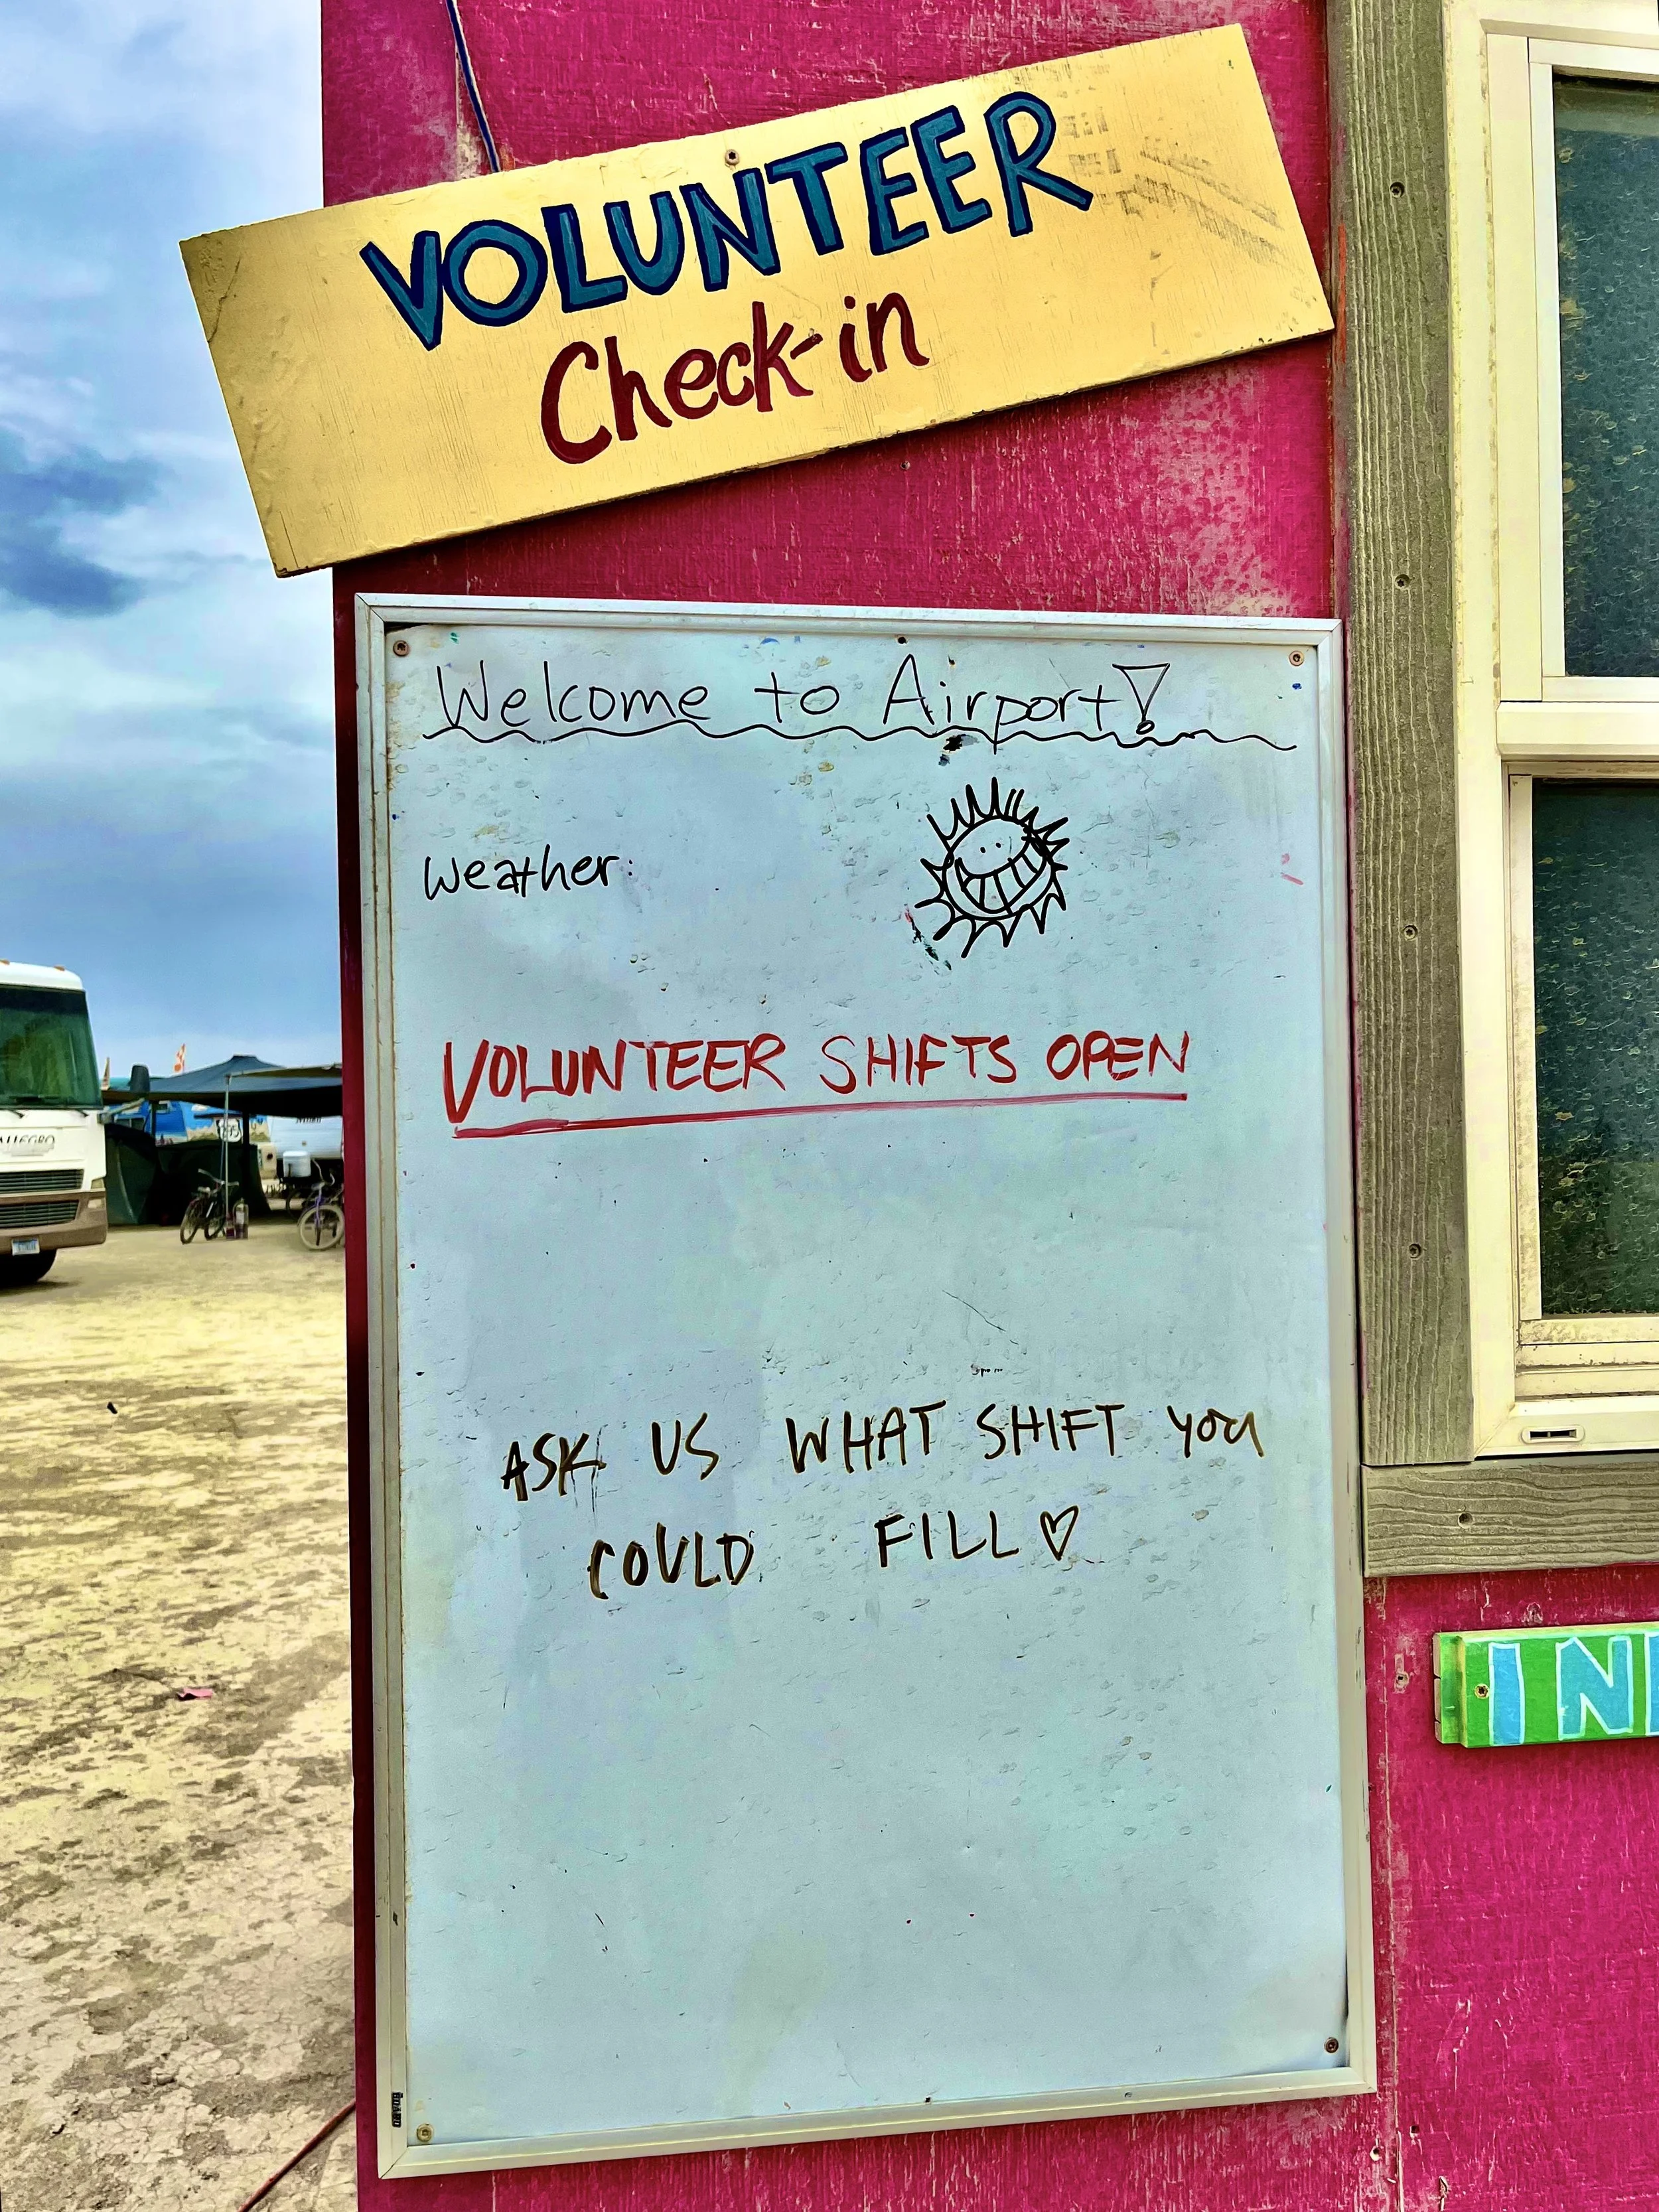 VOLUNTEER
Check-in
Welcome to Airport!
Weather:
VOLUNTEER SHIFTS OPEN
ASK US WHAT SHIFT YOU
COULD FILL♡
ALLEGRO